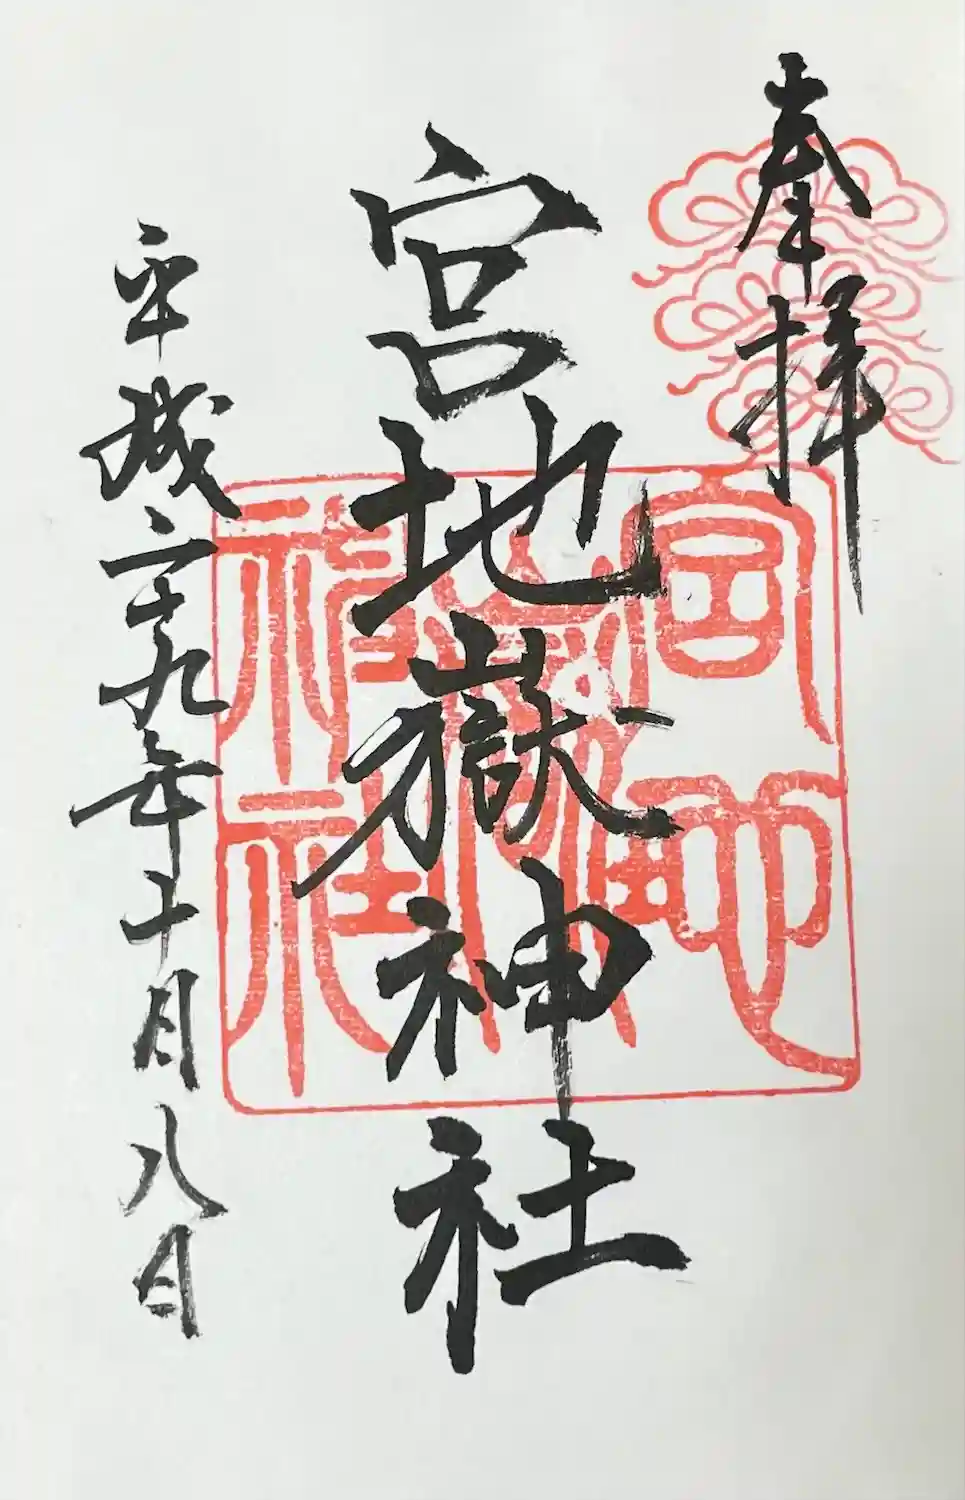 奉拝
宮地嶽神社
平成二十九年十月八日
宮地
嶽
神社